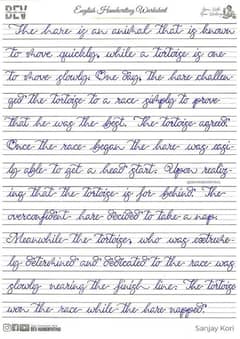 DEV
English Handwriting Worksheet
The hare is an animal that is known
to move quickly, while a tortoise is one
to move slowly. One day, the hare challen-
ged the tortoise to a race simply to prove
that he was the best. The tortoise agreed.
Once the race began the hare was easi-
ly able to get a head start. Upon realiz-
ing that the tortoise is far behind. The
overconfident hare decided to take a nap.
Meanwhile the tortoise, who was extreme-
ly determined and dedicated to the race was
slowly nearing the finish line. The tortoise
won the race while the hare napped.
DEV HANDWRITING
Sanjay Kori